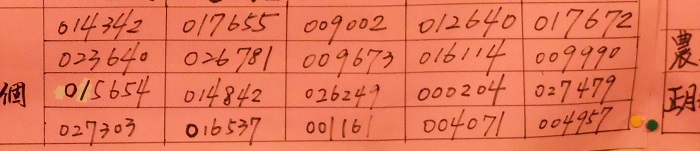 014342 017655 009002 012640 017672
023640 026781 009673 016114 009990
個 015654 014842 026249 000204 027479
027303 016537 001161 004071 004957
農